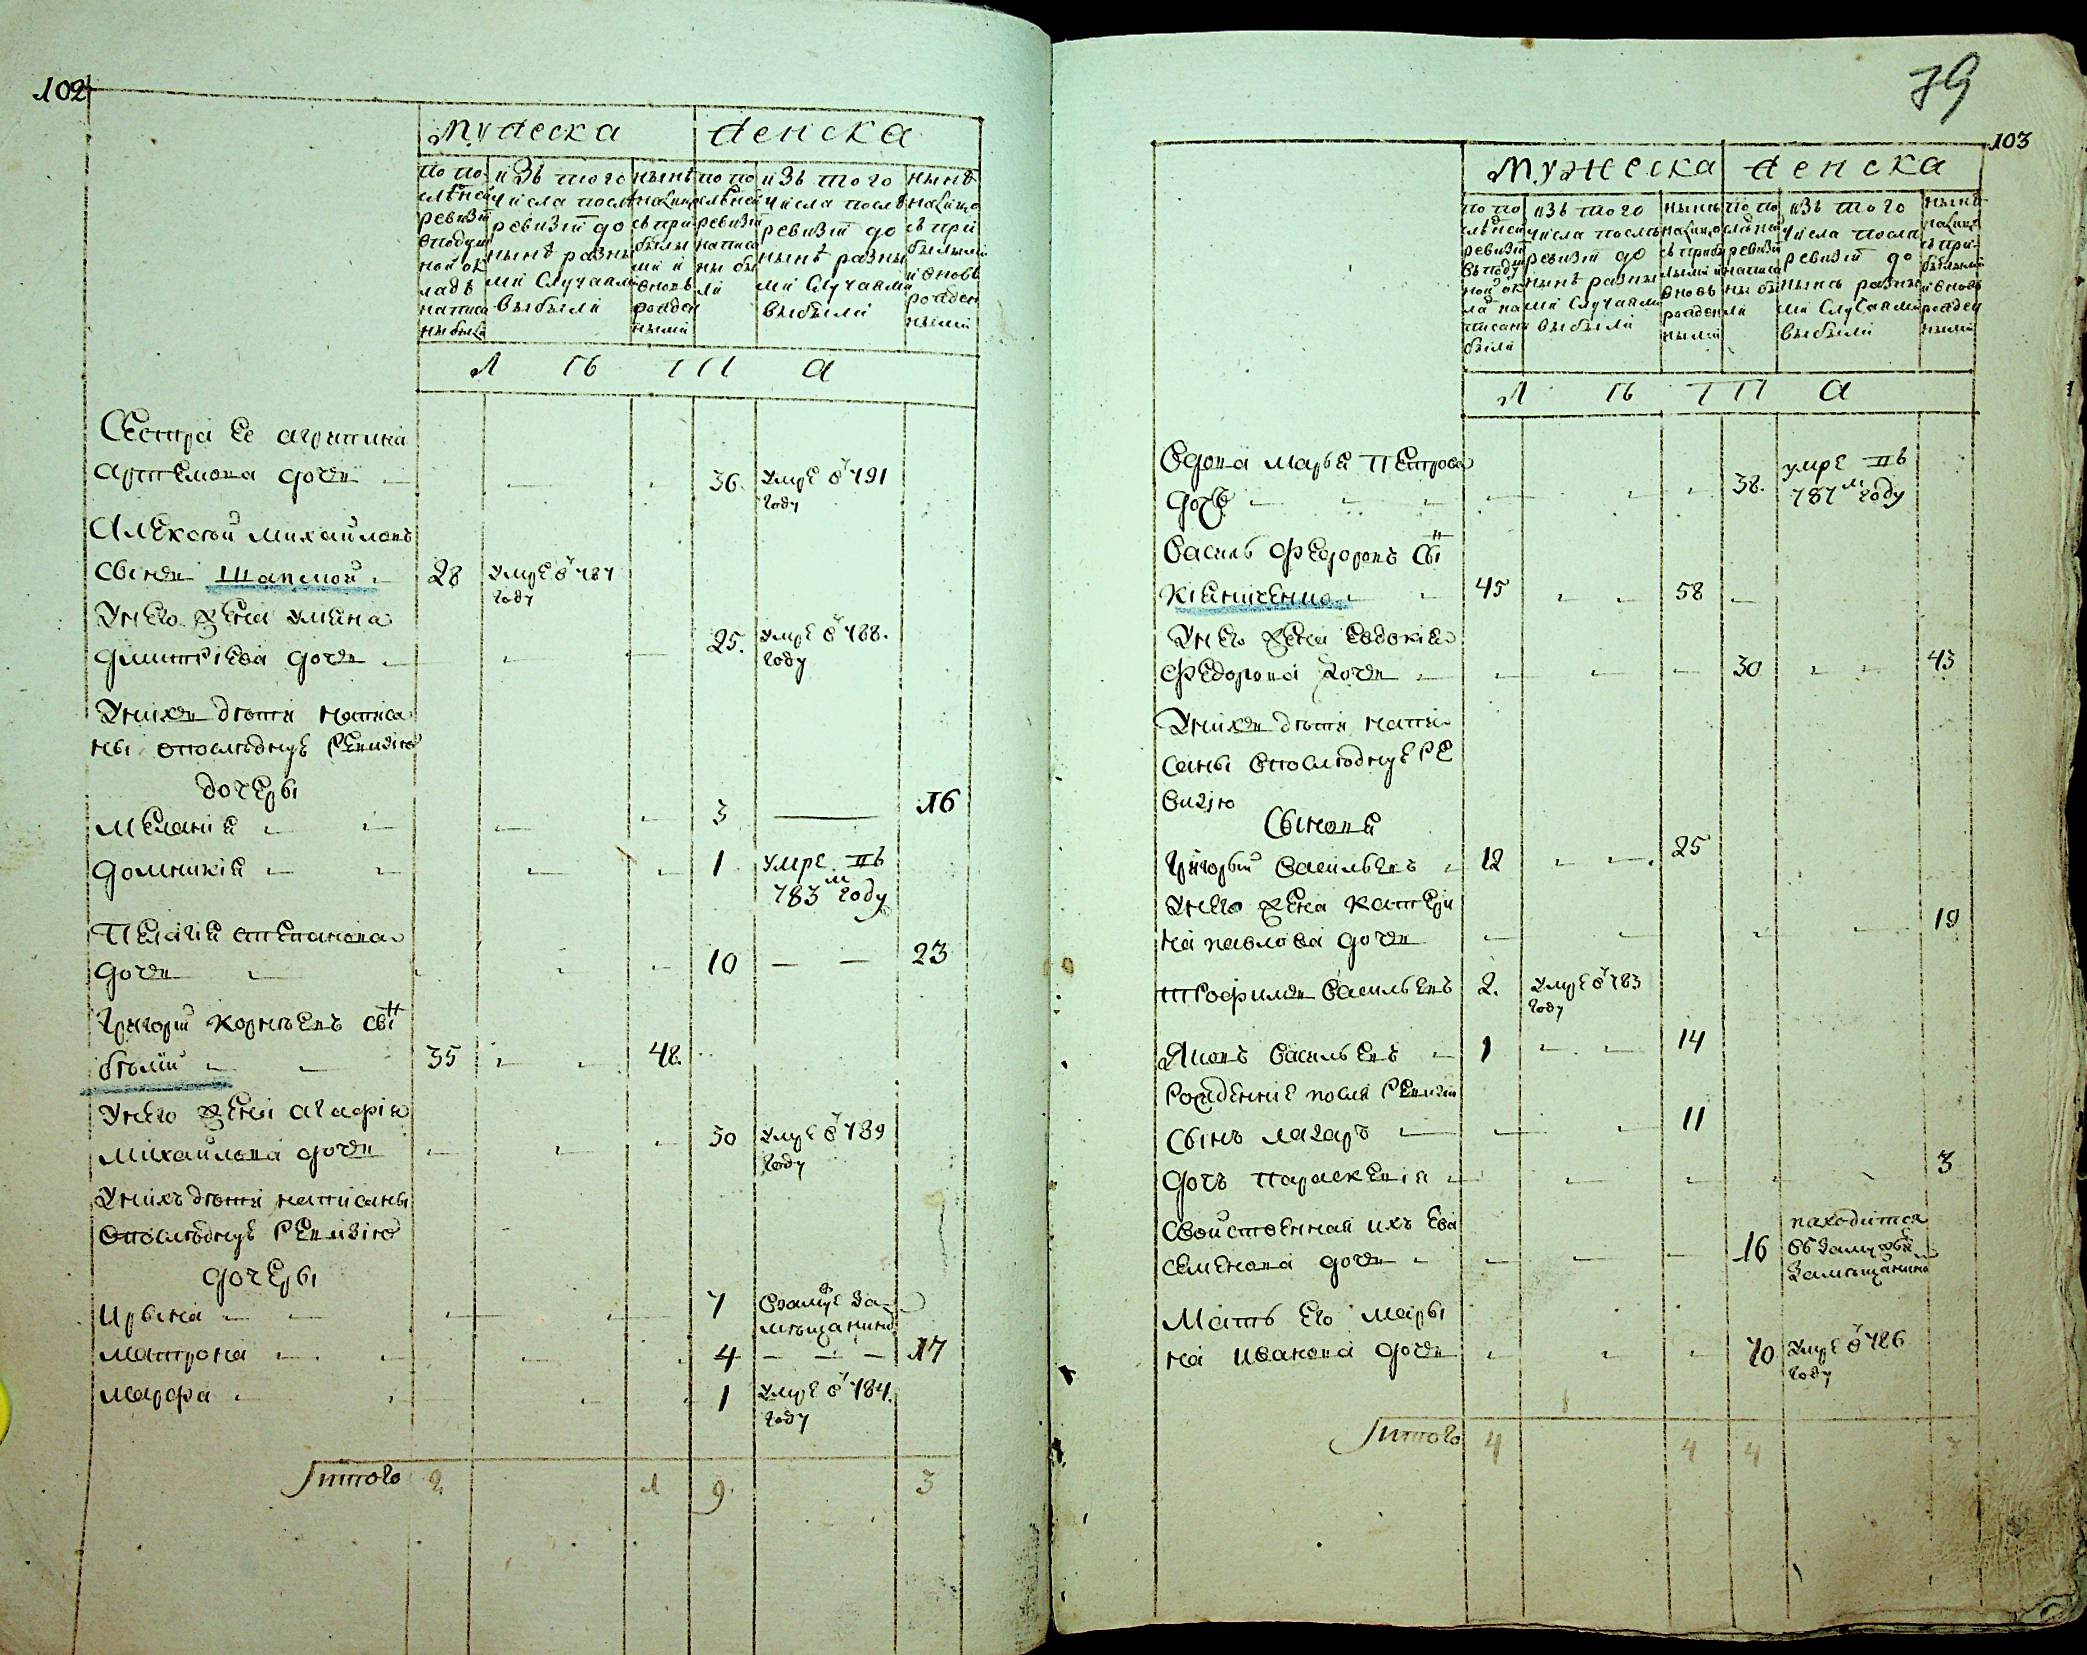 102
Мужеска
Женска
по по
слѣней
ревизіи
вподуш
ной ок
ладѣ
написа
ны были
изъ того
числа послѣ
ревизіи до
нынѣ разны
ми случаями
выбыли
нынѣ
налицо
съ при
былы
ми и
вновь
рожден
ными
по по
слѣней
ревизіи
написа
ны бы
ли
изъ того
числа послѣ
ревизіи до
нынѣ разны
ми случаями
выбыли
нынѣ
налицо
съ при
былыми
и вновь
рожден
ными
Л ѣ т а
Сестра ее агрипина
артемова дочь 36. умре в 791
году
Алексѣй михайловъ
сынъ Шапмой 28 умре в 787
году
Унего жена улияна
дмитріева дочь 25. умре в 788.
году
Унихъ дѣти написа
ны впоследнуе ревизію
дочеры
Меланія 3 16
Домникія 1 умре въ
783м году
Пелагія степанова
дочь 10 23
Григори корнѣевъ сынъ
бѣлій 35 48.
Унего жена агафія
михайлова дочь 30 умре в 789
году
Унихъ дѣти написаны
впослѣднуе ревизію
дочеры
Ирына 7 взамуже за
мѣщанино
матрона 4 17
марфа 1 умре в 784.
году
Итого 2 1 9. 3
79
103
Мужеска
Женска
по по
слѣней
ревизіи
въ поду
ной ок
ла на
писаны
были
изъ того
числа послѣ
ревизіи до
нынѣ разны
ми случаями
выбыли
нынѣ
налицо
съ прибы
лыми и
вновь
рожден
ными
по по
слѣней
ревизіи
написа
ны бы
ли
изъ того
числа послѣ
ревизіи до
нынѣ разны
ми случаями
выбыли
нынѣ
налицо
съ при
былыми
и вновь
рожден
ными
Л ѣ т а
Вдова марья петрова
дочь 38. умре въ
787м году
Василь федоровъ сынъ
45 58
Унего жена евдокия
федорова дочь 30 43
Унихъ дѣти напи
саны впослюднуе ре
визію
Сынове
Григорый васильевъ 12 25
Унего жена катери
на павлова дочь 19
трофимъ васильевъ 2. умре в 783
году
Яковъ васильевъ 1 14
Рожденніе посля ревизіи
сынъ лазаръ 11
дочь параскевія 3
свойственная ихъ ева
семенова дочь 16 находится
въ замужеві
замѣщанино
Мать его мары
на иванова дочь 70 умре в 786
году
Итого 4 4 4